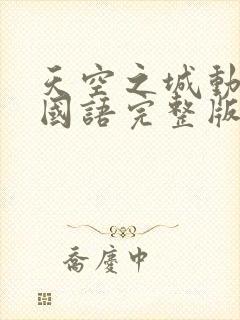 天空之城動
國語完整版
喬慶中